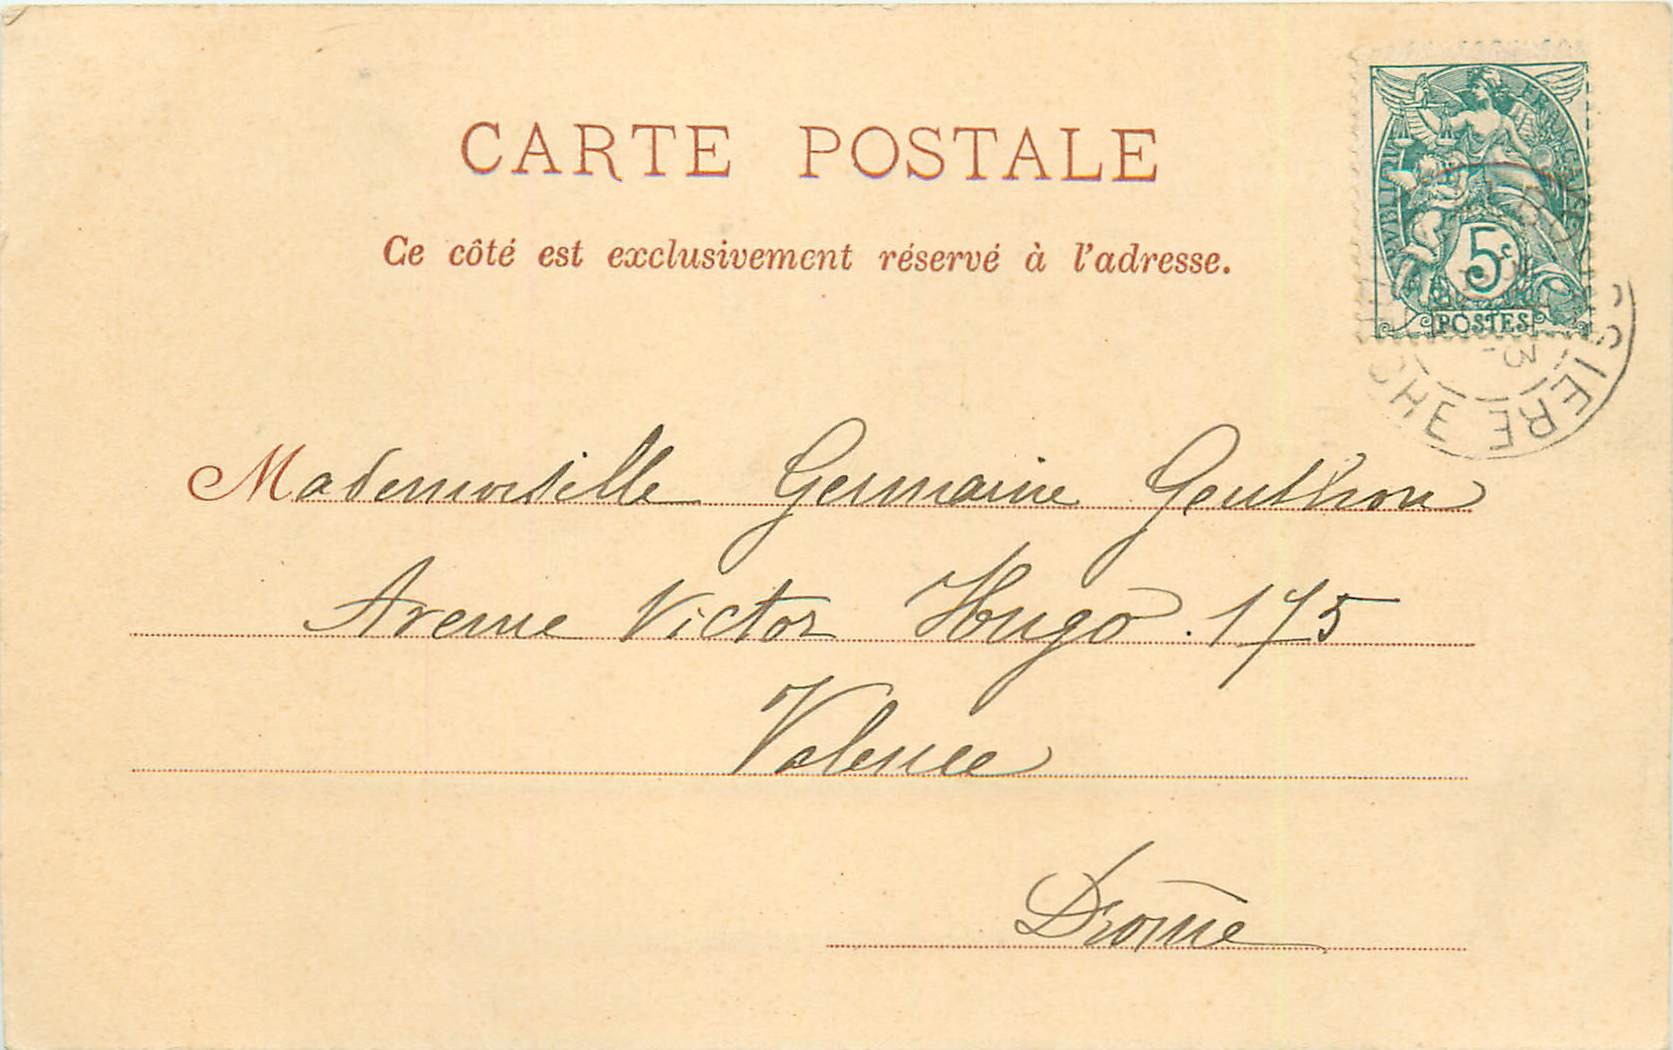 CARTE POSTALE
Ce côté est exclusivement réservé à l'adresse.
RÉPUBLIQUE FRANÇAISE
5c
POSTES
Mademoiselle Germaine Genthon
Avenue Victor Hugo. 175
Valence
Drôme